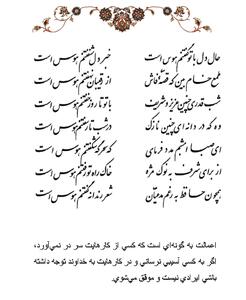 حال دل با تو گفتنم هوس است
خبر دل شنفتنم هوس است
طمع خام بین که قصه فاش
از رقیبان نهفتنم هوس است
شب قدری چنین عزیز و شریف
با تو تا روز خفتنم هوس است
وه که دردانه‌ای چنین نازک
در شب تار سفتنم هوس است
ای صبا امشبم مدد فرمای
که سحرگه شکفتنم هوس است
از برای شرف به نوک مژه
خاک راه تو رفتنم هوس است
همچو حافظ به رغم مدعیان
شعر رندانه گفتنم هوس است
اعمالت به گونه‌اي است كه كسي از كارهايت سر در نمي‌آورد،
اگر به كسي آسيبي نرساني و در كارهايت به خداوند توجه داشته
باشي ايرادي نيست و موفق مي‌شوي.